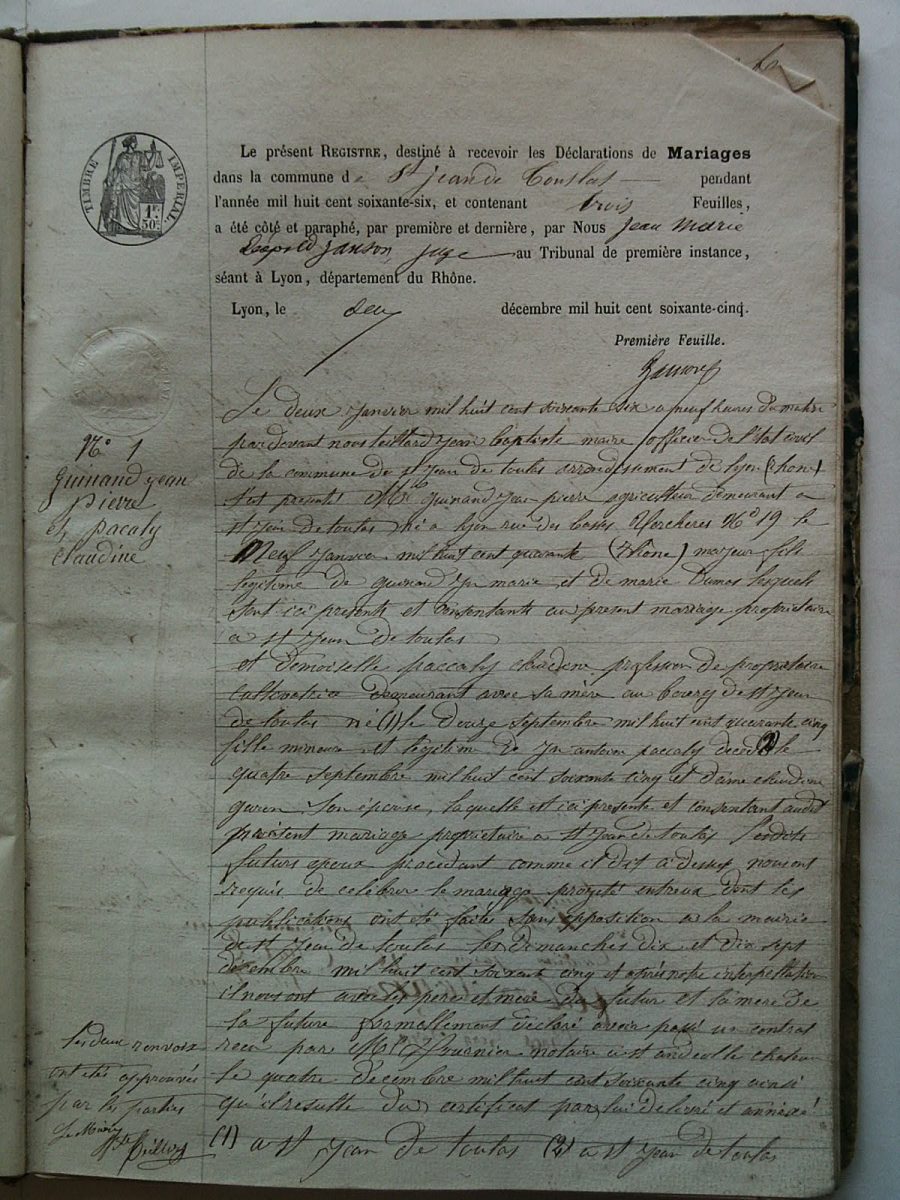 Le présent REGISTRE, destiné à recevoir les Déclarations de Mariages
dans la commune de St jean de Touslas pendant
l'année mil huit cent soixante-six, et contenant trois Feuilles,
a été côté et paraphé, par première et dernière, par Nous Jean Marie
Léopold Janson, juge au Tribunal de première instance,
séant à Lyon, département du Rhône.
Lyon, le décembre mil huit cent soixante-cinq.
Première Feuille.
TIMBRE IMPERIAL
1F
50C
N° 1
Guinand jean
pierre
et paccaly
Claudine
Le deux janvier mil huit cent soixante six a neuf heures du matin
par devant nous teillard jean baptiste maire officier de l'état civil
de la commune de st jean de toulas arrondissement de lyon (rhone)
sont presents Mr guinand jean pierre agriculteur demeurant a
st jean de toulas né a lyon rue des basses Vercheres N° 19 le
Neuf janvier mil huit cent quarante (Rhône) majeur fils
legitime de guinand jn marie et de marie Dumas lesquels
sont ici presents et consentants au present mariage proprietaire
a st jean de toulas
et demoiselle paccaly claudine profession de propriétaire
demeurant avec sa mère au bourg de st jean
de toulas né (1) le douze septembre mil huit cent quarante cinq
fille mineure et legitime de jn antoine paccaly décédé (2) le
quatre septembre mil huit cent soixante cinq et dame claudine
son épouse, laquelle est ici présente et consentant audit
présent mariage propriétaire a st jean de toulas
futurs epoux procédant comme il dit a dessus nous ont
requis de célébrer le mariage projeté entreux dont les
publications ont été faites sans opposition a la mairie
de st jean de toulas les dimanches dix et dix sept
décembre mil huit cent soixante cinq et après notre interpellation
il nous ont avec les pere et mere du futur et la mere de
la future formellement déclaré avoir passé un contrat
recu par Me fournier notaire a st andeol le chateau
le quatre décembre mil huit cent soixante cinq ainsi
qu'il resulte du certificat par lui delivré et annexé
les deux renvois
ont étés approuvés
par les parties
le Maire
(1) a st jean de toulas (2) a st jean de toulas